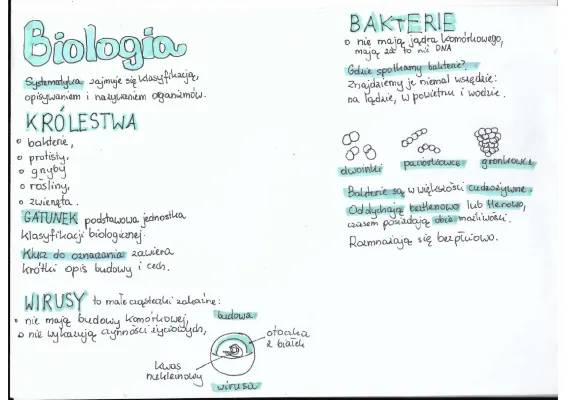 Biologia
Systematyka zajmuje się klasyfikacją,
opisywaniem i nazywaniem organizmów.
KRÓLESTWA
bakterie,
protisty,
grzyby
rośliny,
zwierzęta.
GATUNEK podstawowa jednostka
klasyfikacji biologicznej
Klucz do oznaczania zawiera
krótki opis budowy i cech.
WIRUSY to małe cząsteczki zakaźne:
nie mają budowy komórkowej,
nie wykazują czynności życiowych,
budowa
otoczka
z białek
kwas
nukleinowy
wirusa
BAKTERIE
nie mają jądra komórkowego,
mają za to nić DNA
Gdzie spotkamy bakterie?
Znajdziemy je niemal wszędzie:
na lądzie, w powietrzu i wodzie.
dwoinki paciorkowce gronkowce
Bakterie są w większości cudzożywne.
Oddychają beztlenowo lub tlenowo,
czasem posiadają obie możliwości.
Rozmnażają się bezpłciowo.